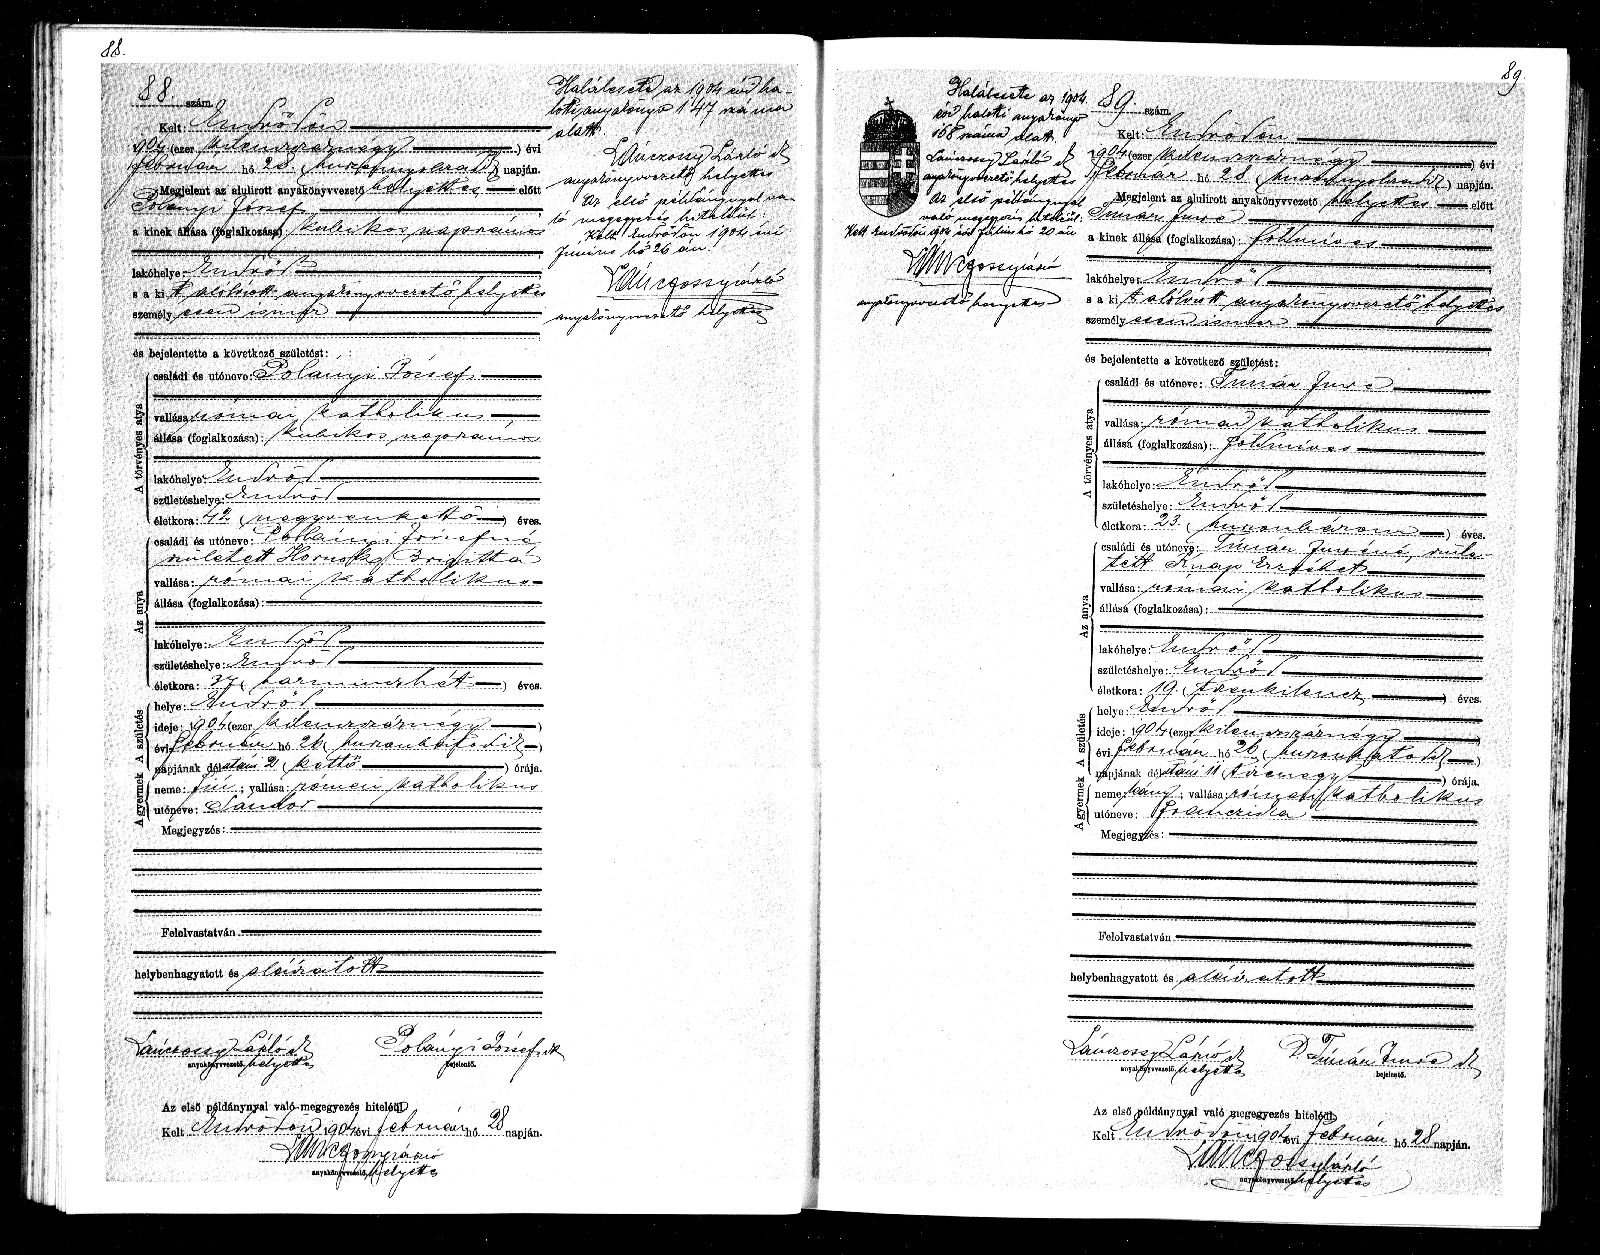 88.
88. szám.
Kelt: Endrődön
1904 (ezer kilenczszáznégy ) évi
február hó 28 (huszonnyolczadik) napján.
Megjelent az alulirott anyakönyvvezető helyettes előtt
Polányi József
a kinek állása (foglalkozása): kubikos napszámos
lakóhelye: Endrőd
s a ki t alólirott anyakönyvvezető helyettes
személy esen ismer
és bejelentette a következő születést:
A törvényes atya
családi és utóneve: Polányi József
vallása: római katholikus
állása (foglalkozása): kubikos, napszámos
lakóhelye: Endrőd
születéshelye: Endrőd
életkora: 42 ( negyvenkettő ) éves.
Az anya
családi és utóneve: Polányi Józsefné
született Hornok Brigitta
vallása: római katholikus
állása (foglalkozása):
lakóhelye: Endrőd
születéshelye: Endrőd
életkora: 37 ( harminczhét ) éves.
A gyermek A születés
helye: Endrőd
ideje: 1904 (ezer kilenczszáznégy )
évi február hó 26 ( huszonhatodik )
napjának délutáni 2 ( kettő ) órája.
neme: fiú ; vallása: római katholikus
utóneve: Sándor
Megjegyzés:
Felolvastatván
helybenhagyatott és aláiratott
Lánczossy László dr
anyakönyvvezető. helyettes
Polányi József sk
bejelentő.
Az első példánynyal való megegyezés hiteléül
Kelt Endrődön 1904 évi február hó 28 napján.
Lánczossy László
anyakönyvvezető. helyettes
Halálesete az 1904 évi ha-
lotti anyakönyv 147 száma
alatt.
Lánczossy László dr
anyakönyvvezető helyettes
Az első példánynyal va-
ló megegyezés hiteléül:
Kelt Endrődön 1904 évi
Június hó 26 án!
Lánczossy László
anyakönyvvezető helyettes
89.
Halálesete az 1904.
évi halotti anyakönyv
168 száma alatt.
Lánczossy László dr
anyakönyvvezető helyettes
Az első példánynyal
való megegyezés hiteléül:
Kelt Endrődön 1904 évi Július hó 20 án
Lánczossy László
anyakönyvvezető helyettes
89. szám.
Kelt: Endrődön
1904 (ezer kilenczszáznégy ) évi
február hó 28 (huszonnyolczadik) napján.
Megjelent az alulirott anyakönyvvezető helyettes előtt
Timár Imre
a kinek állása (foglalkozása): földmíves
lakóhelye: Endrőd
s a ki t alólirott anyakönyvvezető helyettes
személy esen ismer
és bejelentette a következő születést:
A törvényes atya
családi és utóneve: Timár Imre
vallása: római katholikus
állása (foglalkozása): földmíves
lakóhelye: Endrőd
születéshelye: Endrőd
életkora: 23 ( huszonhárom ) éves.
Az anya
családi és utóneve: Timár Imréné, szüle-
tett Knap Erzsébet
vallása: római katholikus
állása (foglalkozása):
lakóhelye: Endrőd
születéshelye: Endrőd
életkora: 19 ( tizenkilencz ) éves.
A gyermek A születés
helye: Endrőd
ideje: 1904 (ezer kilenczszáznégy )
évi február hó 26 ( huszonhatodik )
napjának délutáni ( ) órája.
neme: leány ; vallása: római katholikus
utóneve: Francziska
Megjegyzés:
Felolvastatván
helybenhagyatott és aláiratott
Lánczossy László dr
anyakönyvvezető. helyettes
Timár Imre
bejelentő.
Az első példánynyal való megegyezés hiteléül
Kelt Endrődön 1904 évi február hó 28 napján.
Lánczossy László
anyakönyvvezető. helyettes